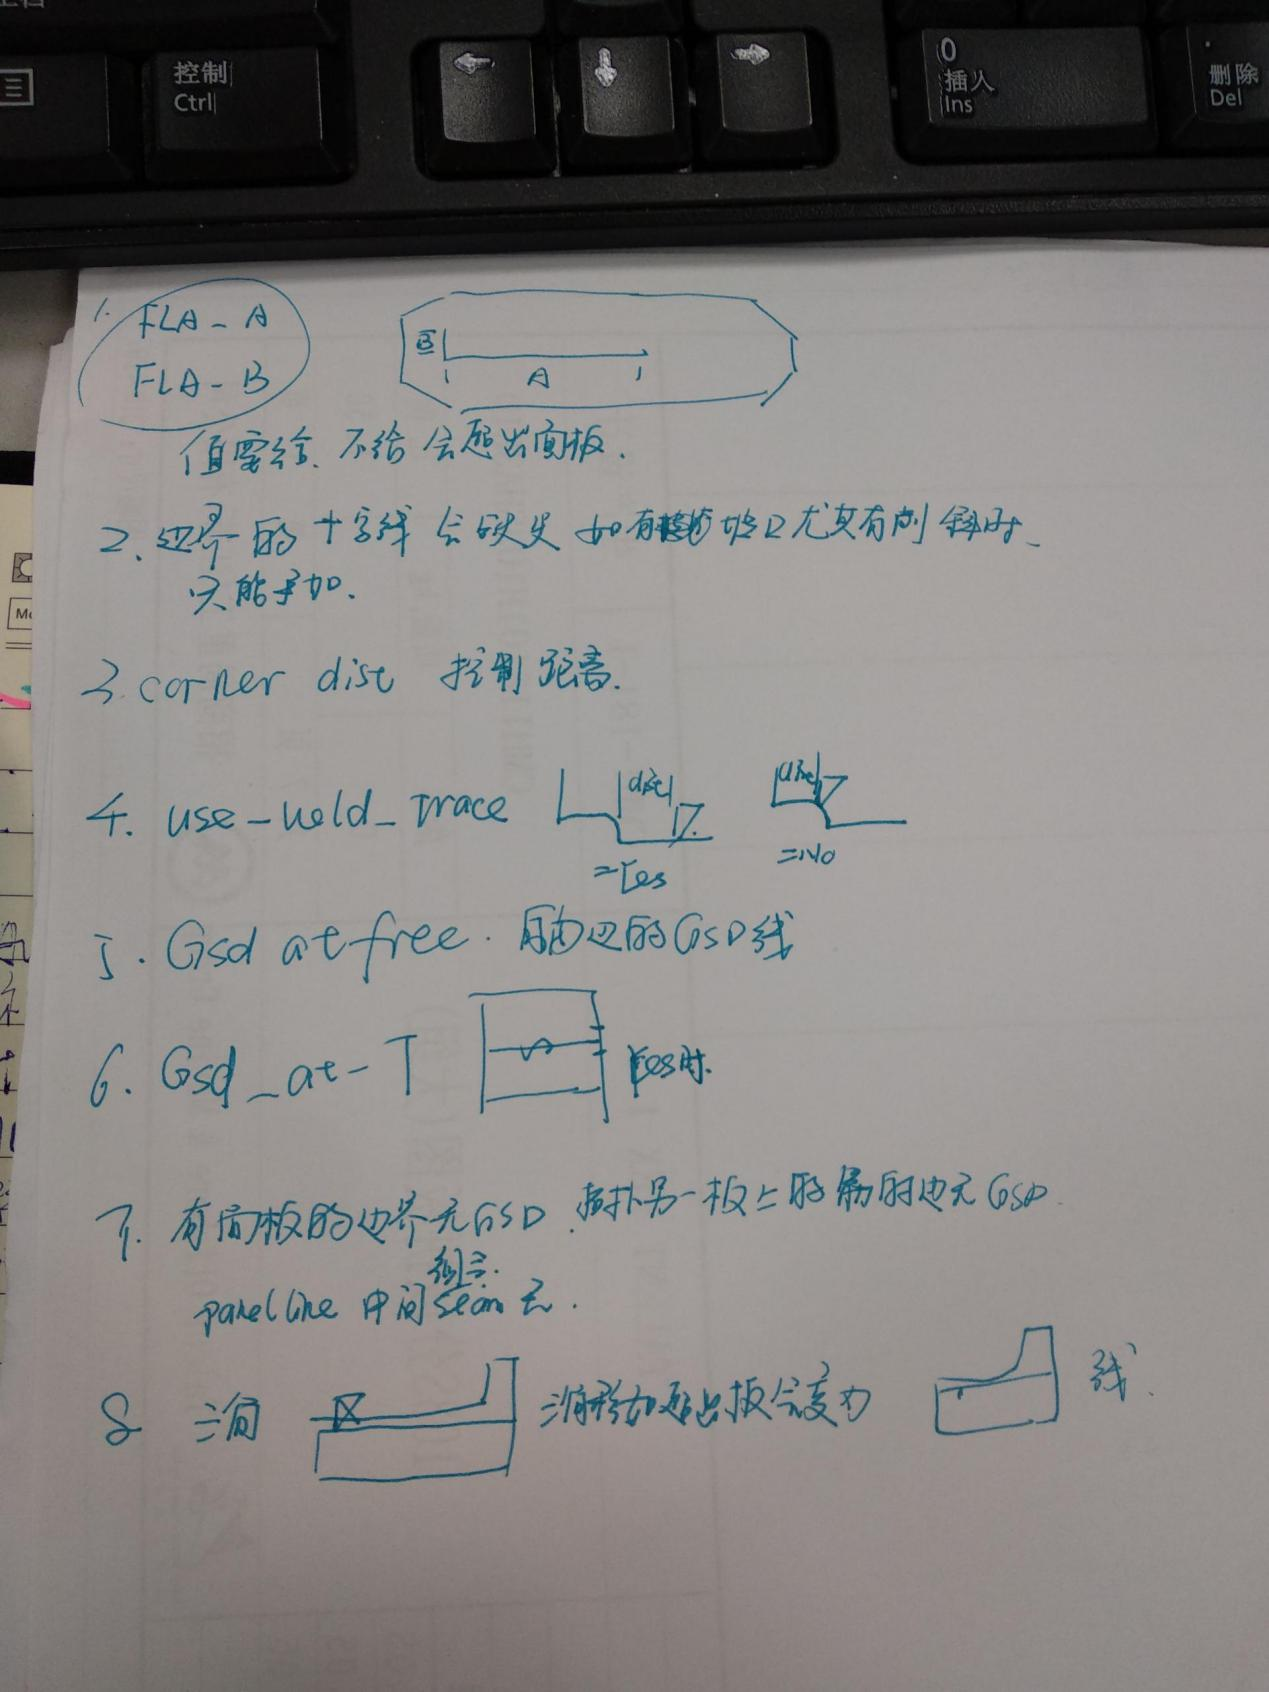 控制
Ctrl
0
插入
Ins
.
删除
Del
1. FLA-A
FLA-B
B
A
值要给、不给会超出面板.
2. 边界的十字线会缺失 如有 坡口尤其有削斜时
只能手加.
3. corner dist 控制距离.
4. use_weld_trace
dist
=Yes
dist
=No
5. Gsd at free. 自由边的GSD线
6. Gsd_at-T
Yes时.
7. 有面板的边界无GSD. 拓扑另一板上的 时也无GSD
组立.
panel line 中间seam无.
8
如超出板会变为
线.